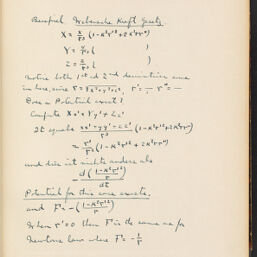 Beispiel Webersche Kraft Gesetz.
X = x/r³ (1-κ²r'²+2κ²rr'')
Y = y/r³ ( )
Z = z/r³ ( )
Notice both 1st & 2nd derivatives come
in here, since r = √x²+y²+z², r' = — r'' = —
Does a Potential exist?
Compute Xx'+Yy'+Zz'
It equals xx'+yy'+zz'/r³ (1-κ²r'²+2κ²rr'')
= r'/r² (1-κ²r'²+2κ²rr'')
und dies ist nichts anderes als
- d(1-κ²r'²/r)/dt
Potential for this case exists.
and F = -(1-κ²r'²/r)
When r'=0 then F is the same as for
Newtons law where F = -1/r